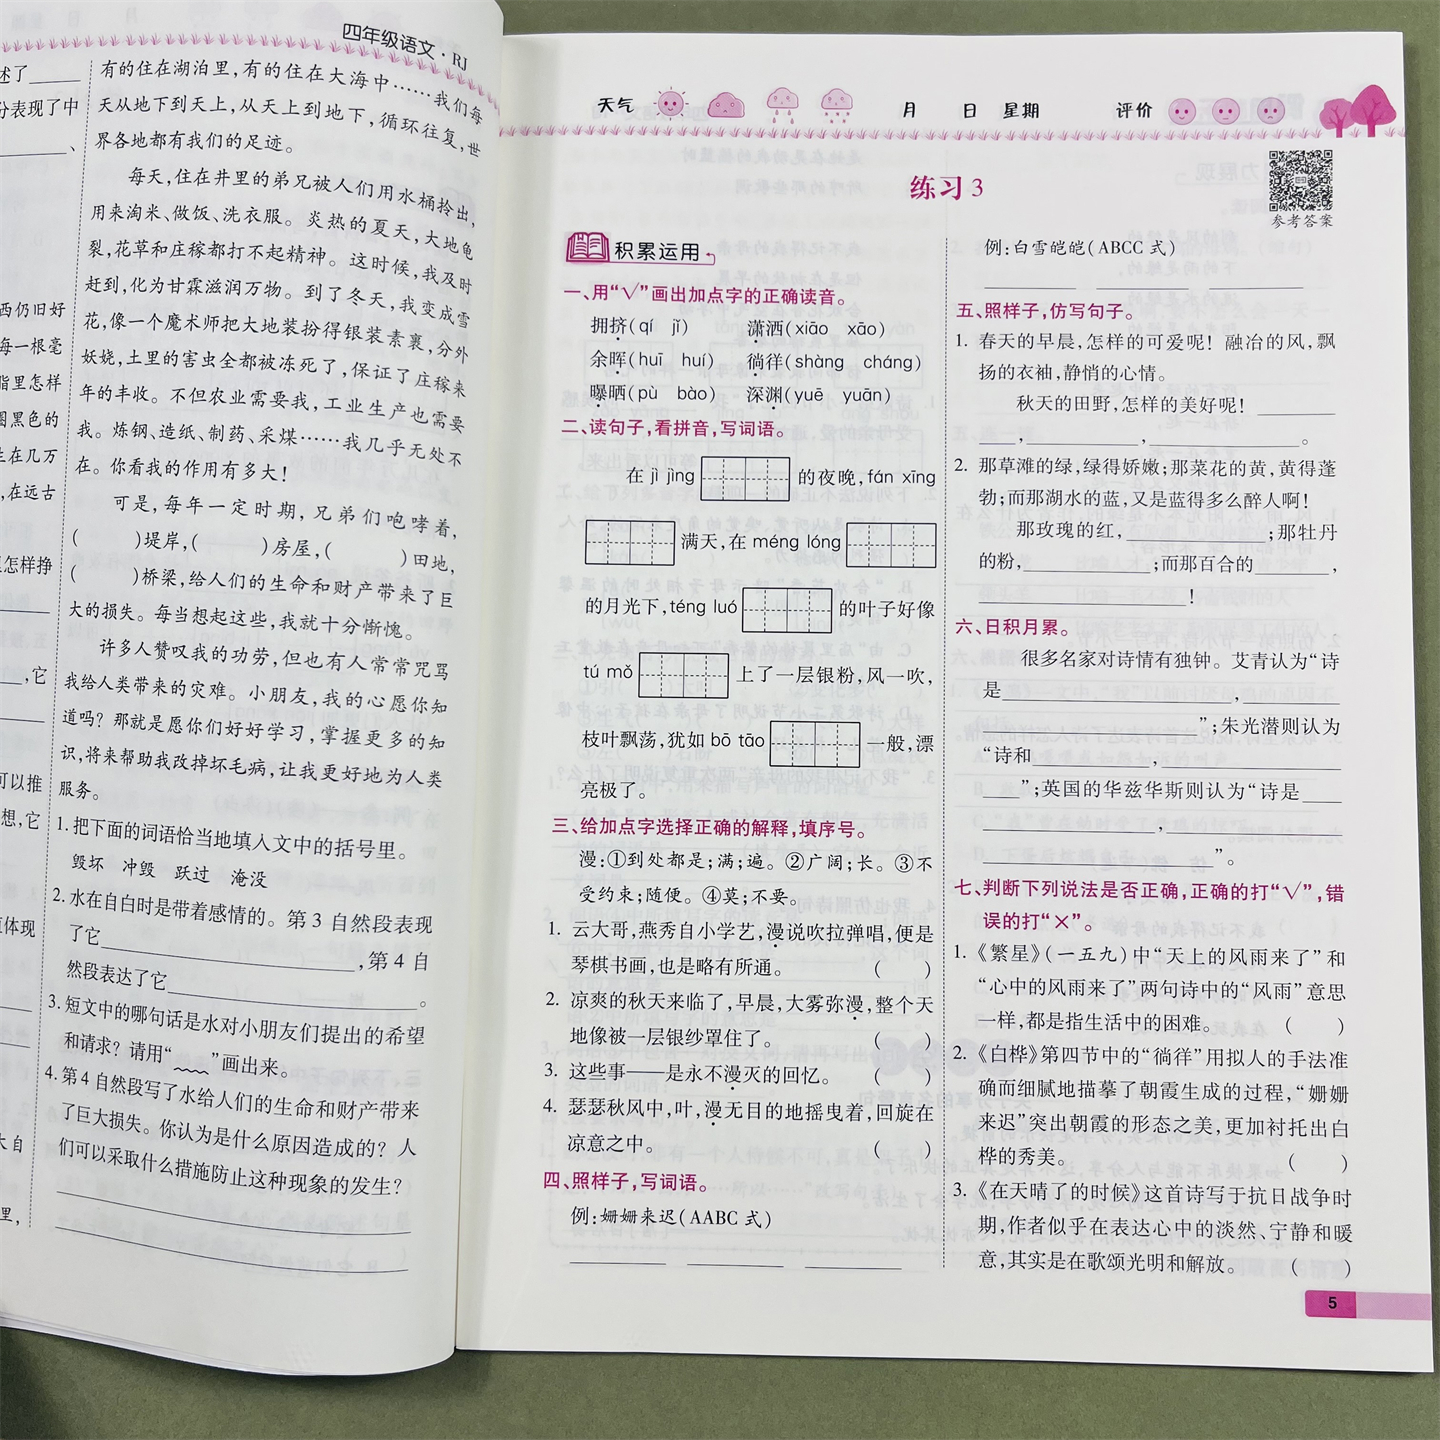 四年级语文·RJ
述了
分表现了中
、
西仍旧好
每一根毫
脂里怎样
圈黑色的
生在几万
,在远古
怎样挣
,它
可以推
想,它
体现
大自
里,
有的住在湖泊里,有的住在大海中……我们每
天从地下到天上,从天上到地下,循环往复,世
界各地都有我们的足迹。
每天,住在井里的弟兄被人们用水桶拎出,
用来淘米、做饭、洗衣服。炎热的夏天,大地龟
裂,花草和庄稼都打不起精神。这时候,我及时
赶到,化为甘霖滋润万物。到了冬天,我变成雪
花,像一个魔术师把大地装扮得银装素裹,分外
妖娆,土里的害虫全都被冻死了,保证了庄稼来
年的丰收。不但农业需要我,工业生产也需要
我。炼钢、造纸、制药、采煤……我几乎无处不
在。你看我的作用有多大!
可是,每年一定时期,兄弟们咆哮着,
( )堤岸,( )房屋,( )田地,
( )桥梁,给人们的生命和财产带来了巨
大的损失。每当想起这些,我就十分惭愧。
许多人赞叹我的功劳,但也有人常常咒骂
我给人类带来的灾难。小朋友,我的心愿你知
道吗?那就是愿你们好好学习,掌握更多的知
识,将来帮助我改掉坏毛病,让我更好地为人类
服务。
1.把下面的词语恰当地填入文中的括号里。
毁坏 冲毁 跃过 淹没
2.水在自白时是带着感情的。第3自然段表现
了它____,第4自
然段表达了它____。
3.短文中的哪句话是水对小朋友们提出的希望
和请求?请用“ ”画出来。
4.第4自然段写了水给人们的生命和财产带来
了巨大损失。你认为是什么原因造成的?人
们可以采取什么措施防止这种现象的发生?
天气 月 日 星期 评价
练习3
参考答案
积累运用
一、用“√”画出加点字的正确读音。
拥挤(qí jǐ) 潇洒(xiāo xāo)
余晖(huī huí) 徜徉(shàng cháng)
曝晒(pù bào) 深渊(yuē yuān)
二、读句子,看拼音,写词语。
在 jì jìng 的夜晚,fán xīng
满天,在 méng lóng
的月光下,téng luó 的叶子好像
tú mǒ 上了一层银粉,风一吹,
枝叶飘荡,犹如 bō tāo 一般,漂
亮极了。
三、给加点字选择正确的解释,填序号。
漫:①到处都是;满;遍。②广阔;长。③不
受约束;随便。④莫;不要。
1. 云大哥,燕秀自小学艺,漫说吹拉弹唱,便是
琴棋书画,也是略有所通。 ( )
2. 凉爽的秋天来临了,早晨,大雾弥漫,整个天
地像被一层银纱罩住了。 ( )
3. 这些事——是永不漫灭的回忆。 ( )
4. 瑟瑟秋风中,叶,漫无目的地摇曳着,回旋在
凉意之中。 ( )
四、照样子,写词语。
例:姗姗来迟(AABC式)
例:白雪皑皑(ABCC式)
五、照样子,仿写句子。
1. 春天的早晨,怎样的可爱呢!融冶的风,飘
扬的衣袖,静悄的心情。
秋天的田野,怎样的美好呢!____
____,____,____。
2. 那草滩的绿,绿得娇嫩;那菜花的黄,黄得蓬
勃;而那湖水的蓝,又是蓝得多么醉人啊!
那玫瑰的红,____;那牡丹
的粉,____;而那百合的____,
____!
六、日积月累。
很多名家对诗情有独钟。艾青认为“诗
是____,____
____”;朱光潜则认为
“诗和____,____
____”;英国的华兹华斯则认为“诗是____
____,____
____”。
七、判断下列说法是否正确,正确的打“√”,错
误的打“×”。
1.《繁星》(一五九)中“天上的风雨来了”和
“心中的风雨来了”两句诗中的“风雨”意思
一样,都是指生活中的困难。 ( )
2.《白桦》第四节中的“徜徉”用拟人的手法准
确而细腻地描摹了朝霞生成的过程,“姗姗
来迟”突出朝霞的形态之美,更加衬托出白
桦的秀美。 ( )
3.《在天晴了的时候》这首诗写于抗日战争时
期,作者似乎在表达心中的淡然、宁静和暖
意,其实是在歌颂光明和解放。 ( )
5